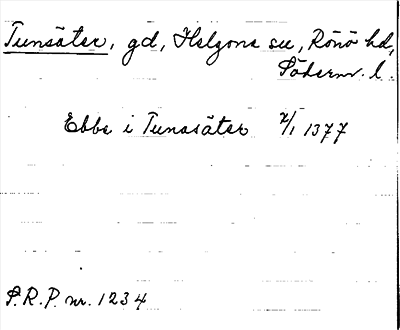 Tunsäter, gd, Helgona sn, Rönö hd,
Söderm. l.
Ebbe i Tunasäter 2/1 1377
S.R.P. nr. 1234